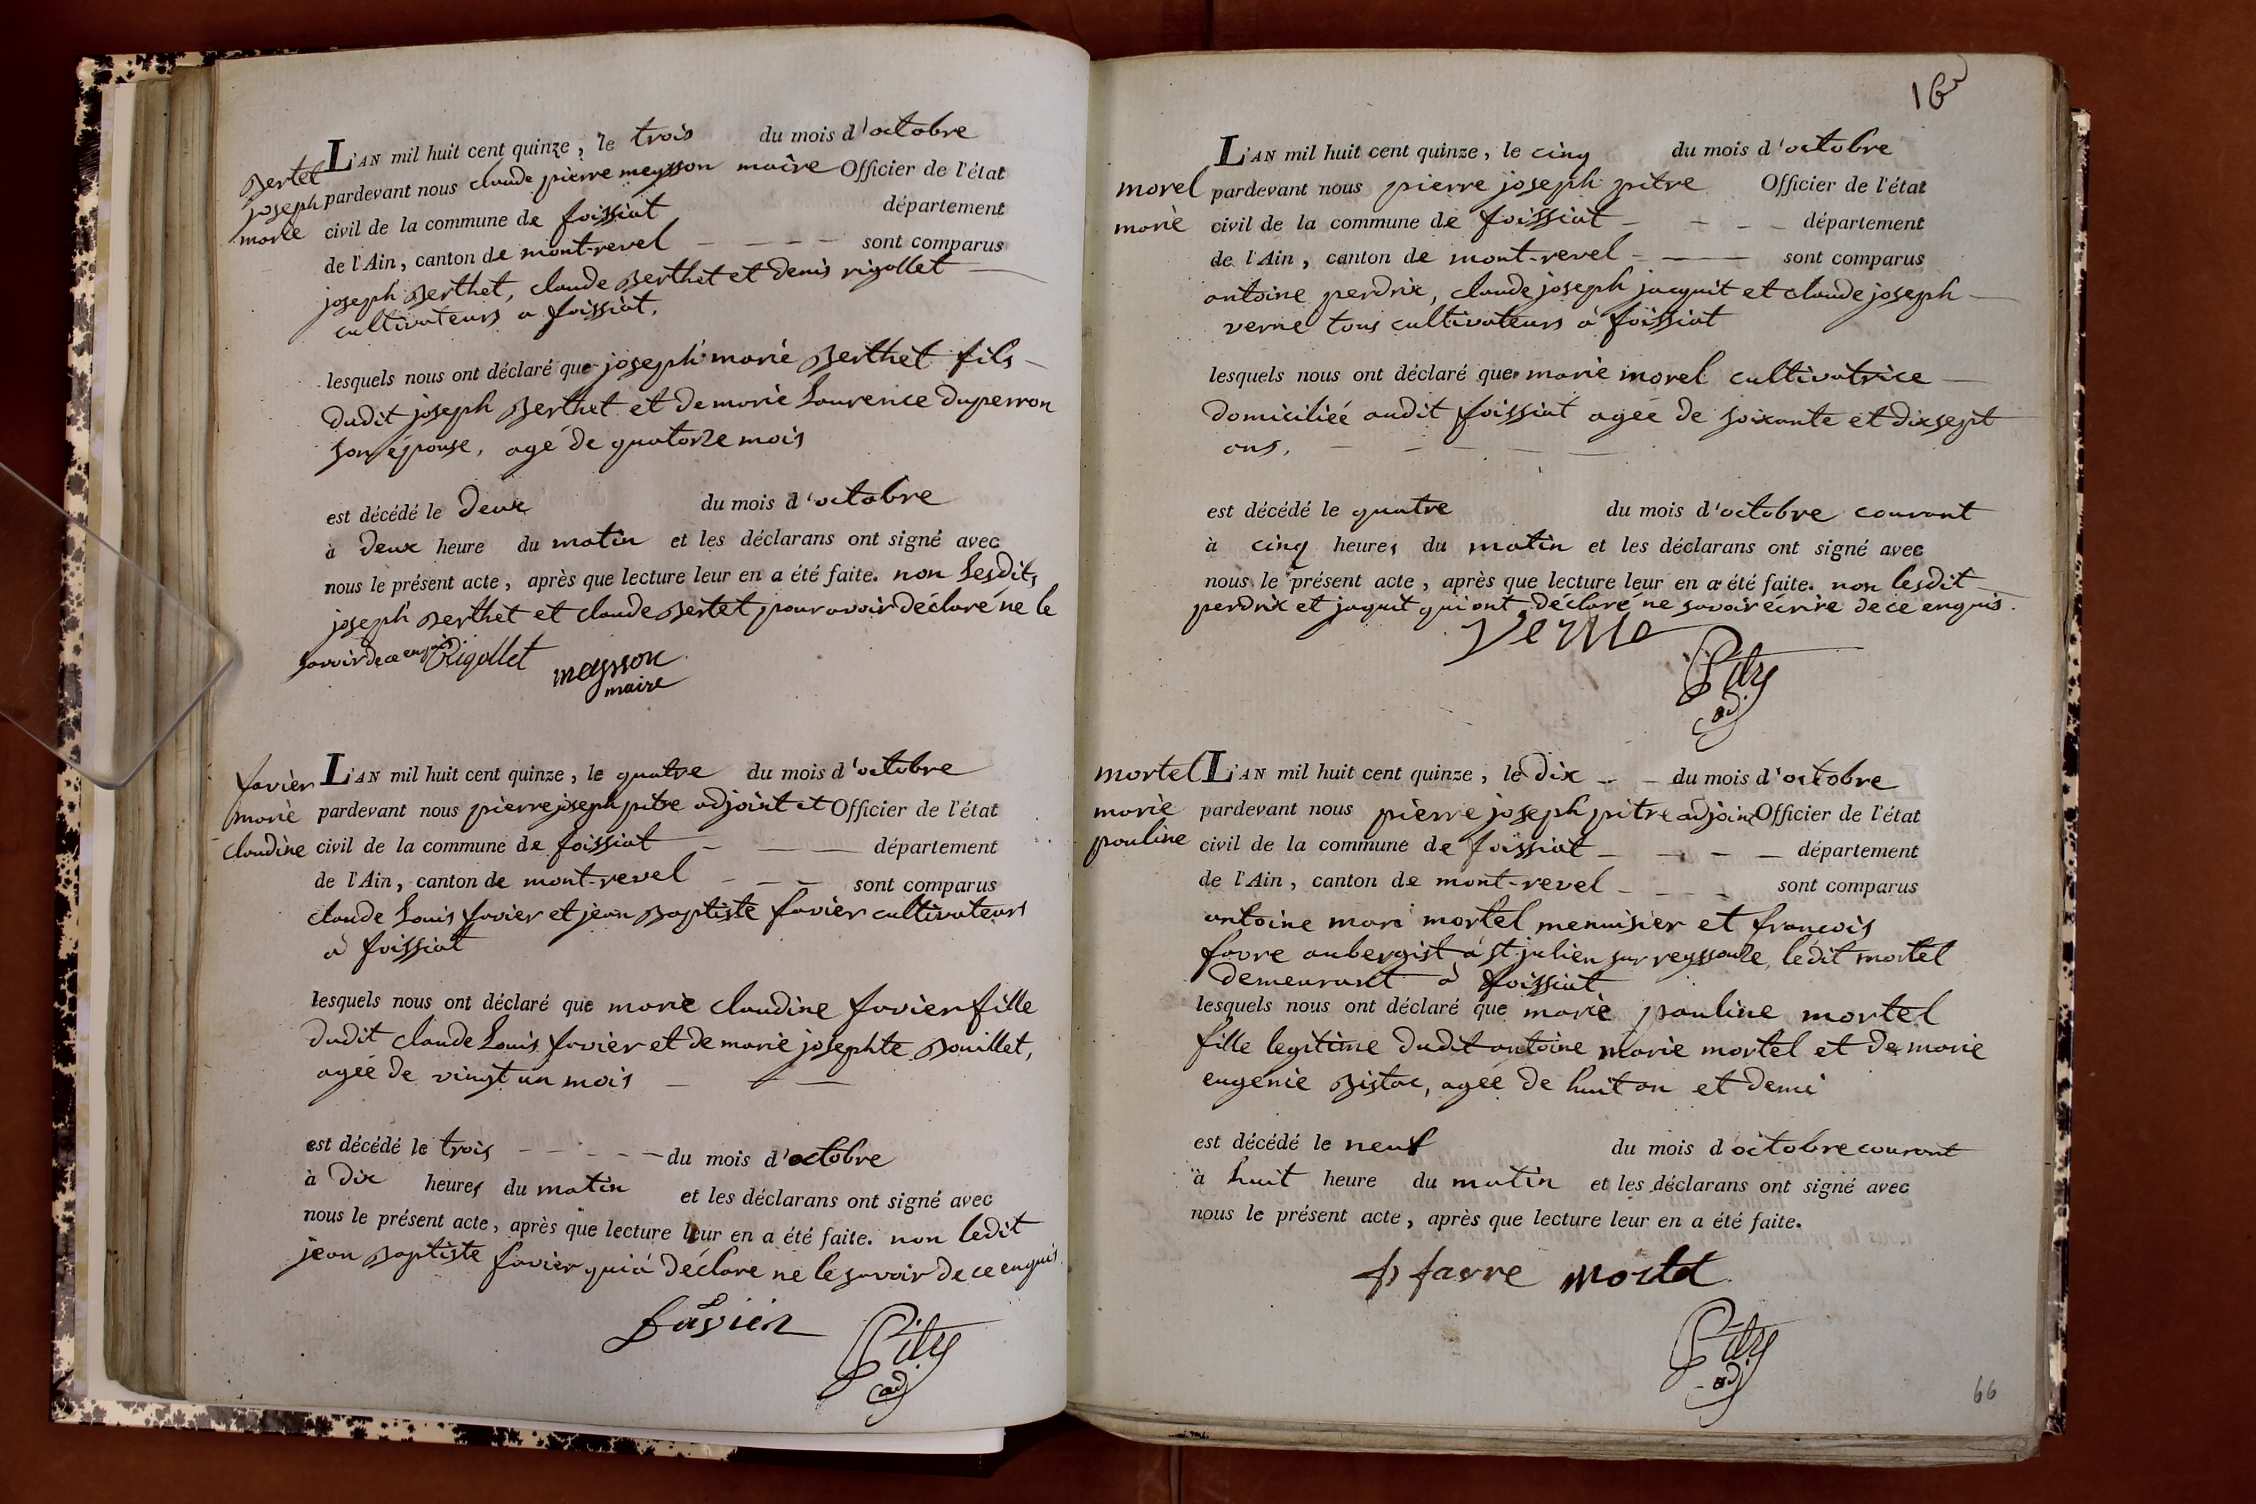 Bertet
joseph
marie
L'AN mil huit cent quinze, le trois du mois d'octobre
pardevant nous claude pierre meysson maire Officier de l'état
civil de la commune de foissiat département
de l'Ain, canton de mont-revel - - - - sont comparus
joseph Berthet, claude Berthet et denis rigollet —
cultivateurs a foissiat,
lesquels nous ont déclaré que joseph marie Berthet fils —
dudit joseph Berthet et de marie Laurence duperron
son épouse, agé de quatorze mois
est décédé le deux du mois d'octobre
à deux heure du matin et les déclarans ont signé avec
nous le présent acte, après que lecture leur en a été faite. non Lesdits
joseph Berthet et claude Bertet pour avoir déclaré ne le
savoir de ce enquis Rigollet meysson
maire
favier
marie
claudine
L'AN mil huit cent quinze, le quatre du mois d'octobre
pardevant nous pierre joseph pitre adjoint et Officier de l'état
civil de la commune de foissiat - — — département
de l'Ain, canton de mont-revel - - — sont comparus
claude Louis favier et jean Baptiste favier cultivateurs
a foissiat
lesquels nous ont déclaré que marie claudine favier fille
dudit claude Louis favier et de marie josephte Bouillet,
agée de vingt un mois — — —
est décédé le trois - - - - — du mois d'octobre
à dix heures du matin et les déclarans ont signé avec
nous le présent acte, après que lecture leur en a été faite. non ledit
jean Baptiste favier qui a déclare ne le savoir de ce enquis
favier Pitre
adj
16
morel
marie
L'AN mil huit cent quinze, le cinq du mois d'octobre
pardevant nous pierre joseph pitre Officier de l'état
civil de la commune de foissiat - - - - département
de l'Ain, canton de mont-revel - — — sont comparus
antoine perdrix, claude joseph jacquit et claude joseph —
verne tous cultivateurs à foissiat
lesquels nous ont déclaré que marie morel cultivatrice —
domiciliéé audit foissiat agée de soixante et dix sept
ans, - - - - —
est décédé le quatre du mois d'octobre courant
à cinq heures du matin et les déclarans ont signé avec
nous le présent acte, après que lecture leur en a été faite. non lesdit —
perdrix et jaquit qui ont déclaré ne savoir écrire de ce enquis.
Verne
Pitre
adj
mortel
marie
pauline
L'AN mil huit cent quinze, le dix - - du mois d'octobre
pardevant nous pierre joseph pitre adjoint Officier de l'état
civil de la commune de foissiat - - - — département
de l'Ain, canton de mont-revel - - - sont comparus
antoine mari mortel menuisier et francois
favre aubergist a st julien sur reyssouze, ledit mortel
demeurant a foissiat
lesquels nous ont déclaré que marie pauline mortel
fille legitime dudit antoine marie mortel et de marie
eugénie Bistac, agéé de huit an et demi
est décédé le neuf du mois d octobre courant
à huit heure du matin et les déclarans ont signé avec
nous le présent acte, après que lecture leur en a été faite.
f favre mortel
Pitre
adj
66